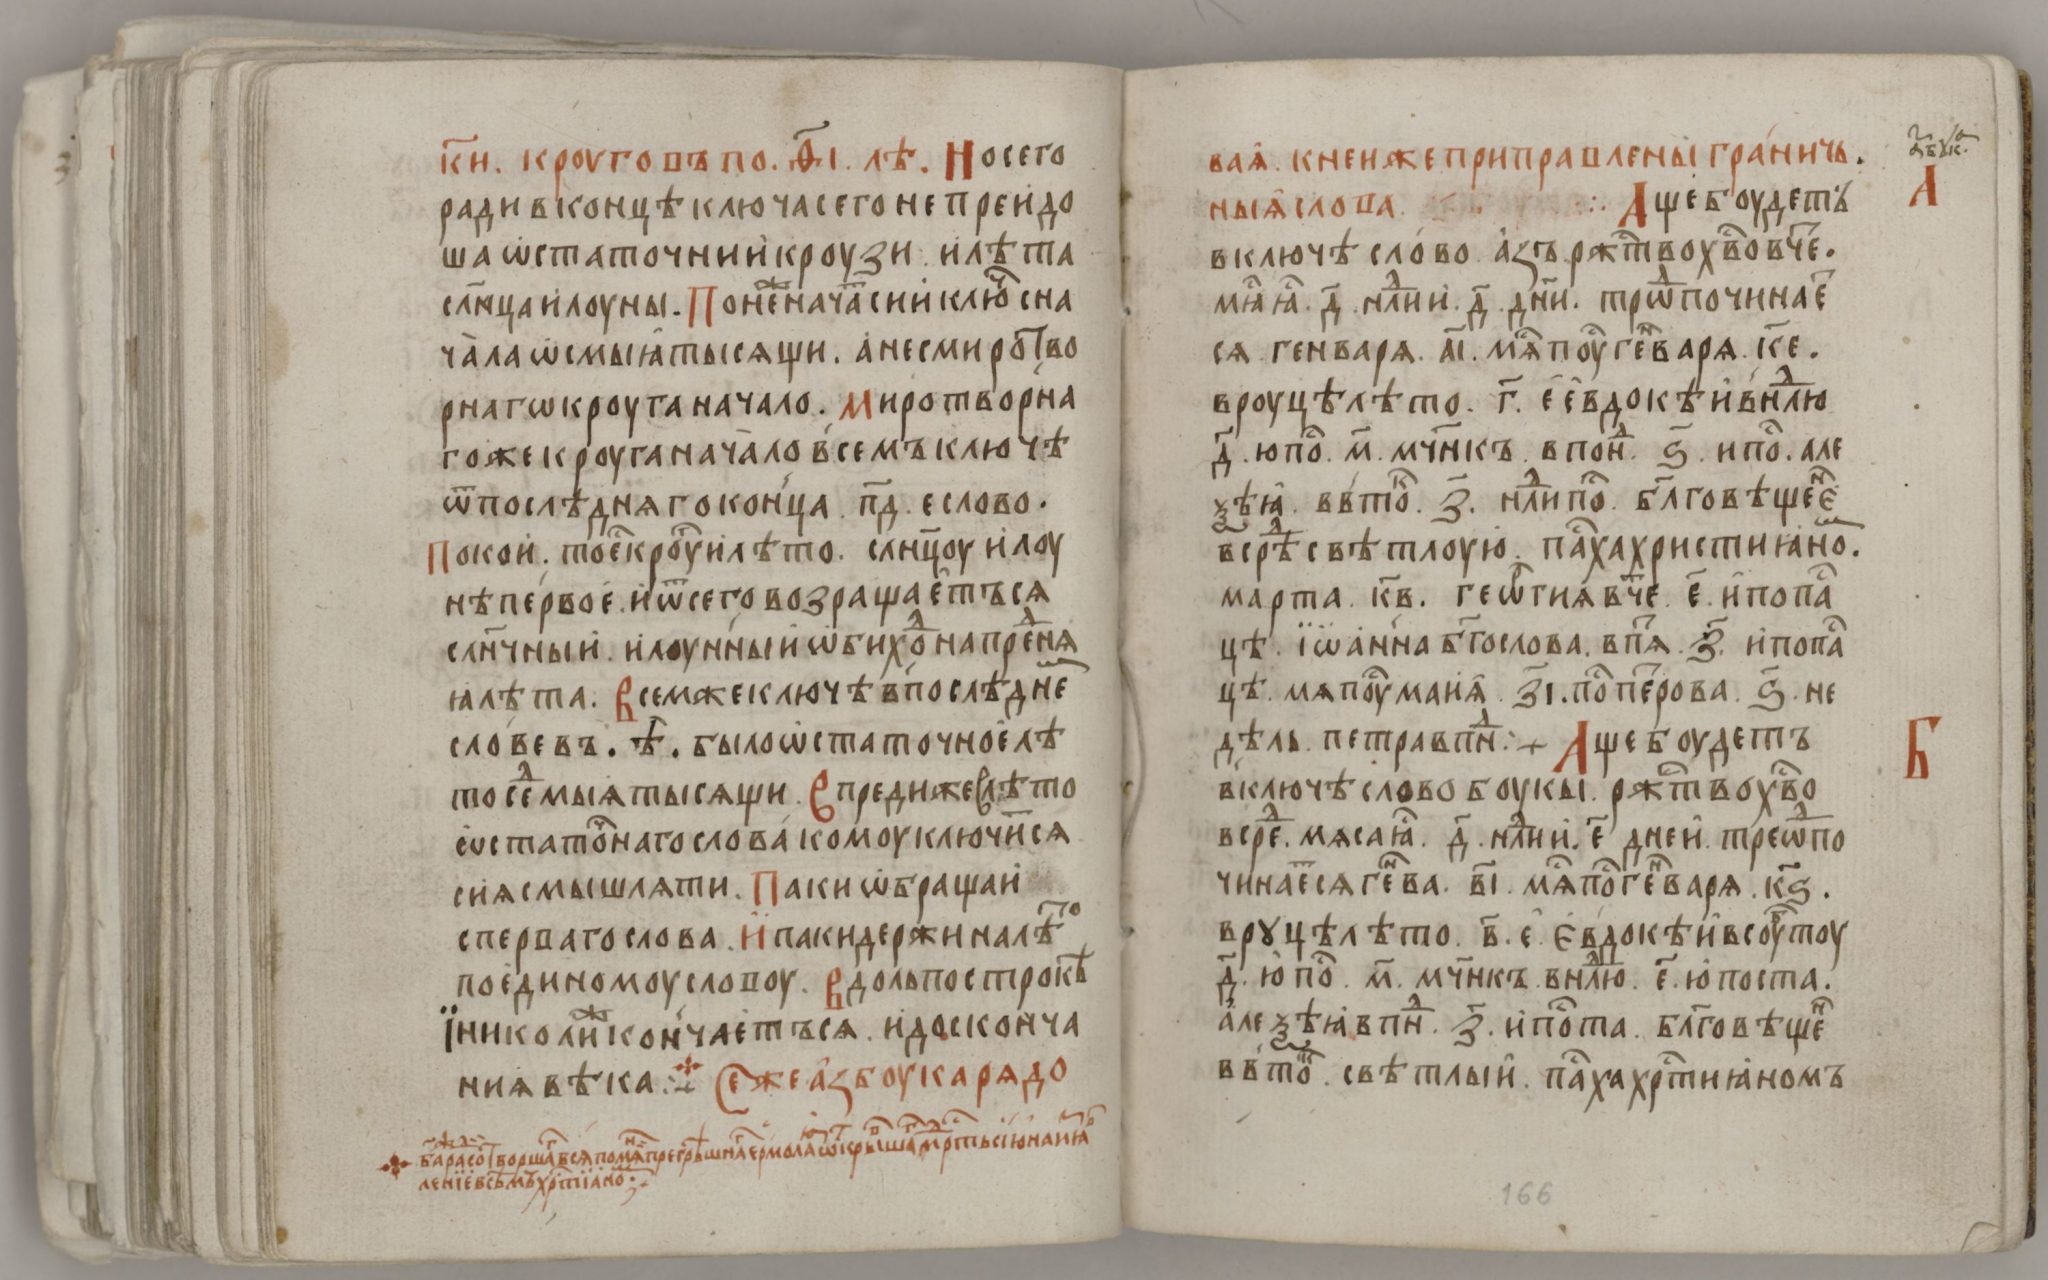 к҃и. кроуговъ по. ф҃і. лѣ. Но сего
ради в концѣ ключа сего не преидо
ша ѡстаточнии кроузи. и лѣта
сл҃нца и лоуны. Понеⷤ начаⷭ҇ сии клюⷱ҇ с на
чала ѡсмыꙗ тысящи. а не с миротво
рнагѡ кроуга начало. Миротворна
го же кроуга начало в семъ ключѣ
ѿ послѣдняго конца п҃д. е слово.
Покои. то еⷭ҇ кроуⷢ҇ и лѣто. сл҃нцоу и лоу
нѣ первое. и ѿ сего возращаетъся
сл҃нчныи. и лоунныи ѡбихоⷣ на преⷣня
ꙗ лѣта. В сем же ключѣ в послѣдне
словѣ въ. ѣ҃. было ѡстаточное лѣ
то сеⷣмыя тысящи. Спреди же лѣто
ѡстатоⷱ҇наго слова комоу ключиⷮся
сия смышляти. Паки ѡбращаи
с перваго слова. И паки держи на лѣⷮ҇о
по единомоу словоу. В доль по строкѣ
Ї николиⷤ кончаетъся. и до сконча
ния вѣка. Се же азбоука рядо
леніе всѣмъ хрⷭ҇тіаноⷨ
вая. к неи же приправлены граничь.
ныя слова. Аще боудетъ
А
в ключѣ слово азъ рж҃тво хв҃о в чеⷮ.
мяⷭ҇ꙗⷣ. д҃. нⷣли и. д҃. дн҃и. трѡⷣ починаеⷮ
ся генваря. а҃і. мяⷭ҇поуⷭ҇ геⷩваря. к҃е.
вроуцѣлѣто. г҃. е евдокѣи в нⷣлю
д҃. ю поⷭ҇. м҃. мч҃нкъ. в поⷩⷣ. ѕ҃. и поⷭ҇. але
ѯѣꙗ. в втоⷬ҇. з҃. нⷣли поⷭ҇. бл҃говѣщеⷩе
в среⷣ свѣтлоую. паⷭ҇ха христиꙗноⷨ.
марта. к҃в. геѡⷬ҇гия в чеⷮ. е҃. и по паⷭ҇
цѣ. їѡанна бг҃ослова. в пя. з҃. и по паⷭ҇
цѣ. мяпоуⷭ҇ маия. з҃і. поⷭ҇ перова. ѕ҃. не
дѣль. петра в пⷩⷣ. Аще боудетъ
Б
в ключѣ слово боукы. рж҃тво хв҃о
в среⷣ. мясаꙗⷣ. д҃. нⷣли и. е҃ днеи. треѡⷣ по
чинаеⷮся геⷩва. в҃і. мяⷭ҇поⷭ҇ геⷩваря. к҃ѕ.
врꙋцѣлѣто. в҃. е. Евдокѣи в соуⷠтоу
д҃. ю поⷭ҇. м҃. мч҃нкъ. в нⷣлю. е҃. ю поста.
алеѯѣꙗ в пⷩⷣ. з҃. и поⷭ҇та. бл҃говѣщеⷩ
в втоⷬ҇. свѣтлыи. паⷭ҇ха хрⷭ҇тиꙗномъ
166